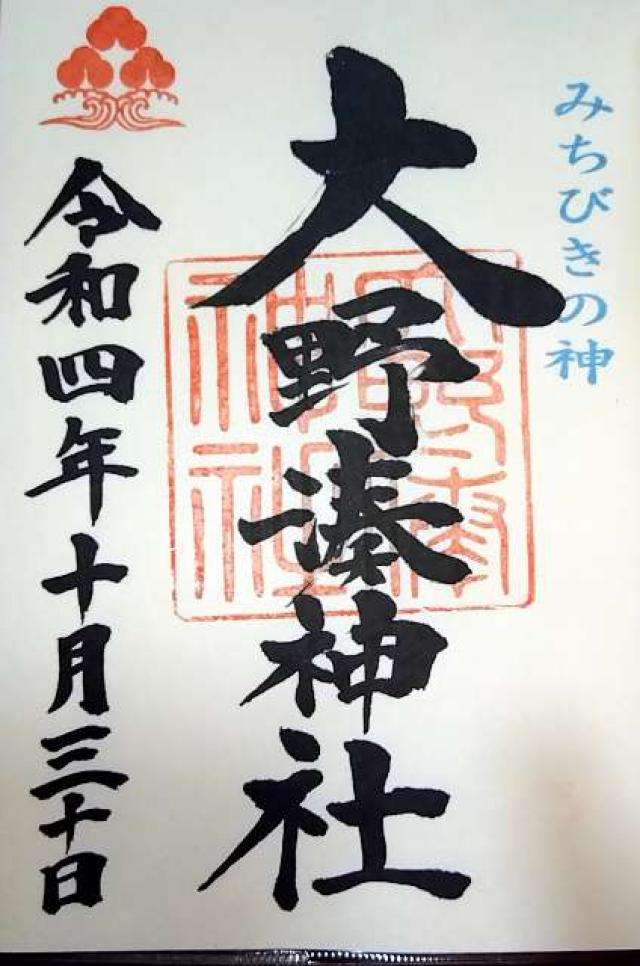 みちびきの神
大野湊神社
令和四年十月三十日